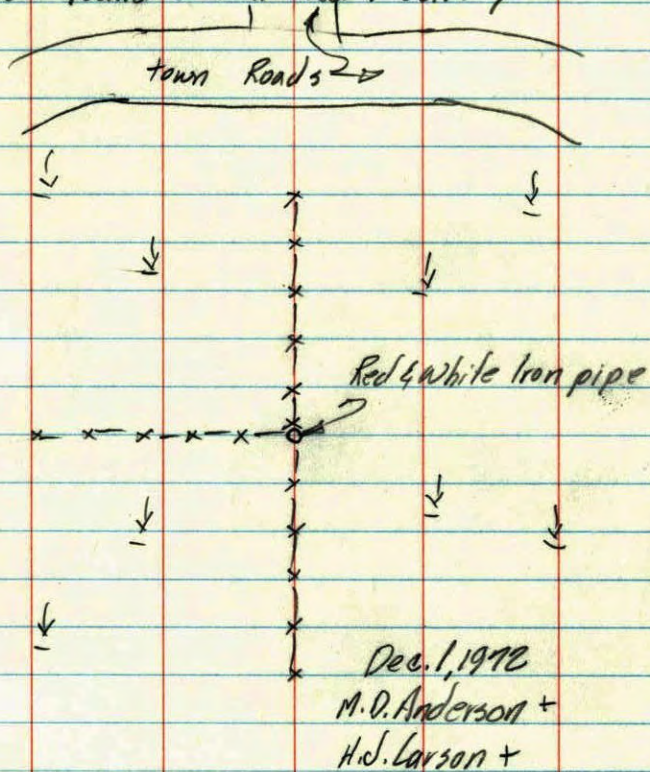 town Roads
Red & White Iron pipe
Dec. 1, 1972
M.D. Anderson +
H.J. Larson +